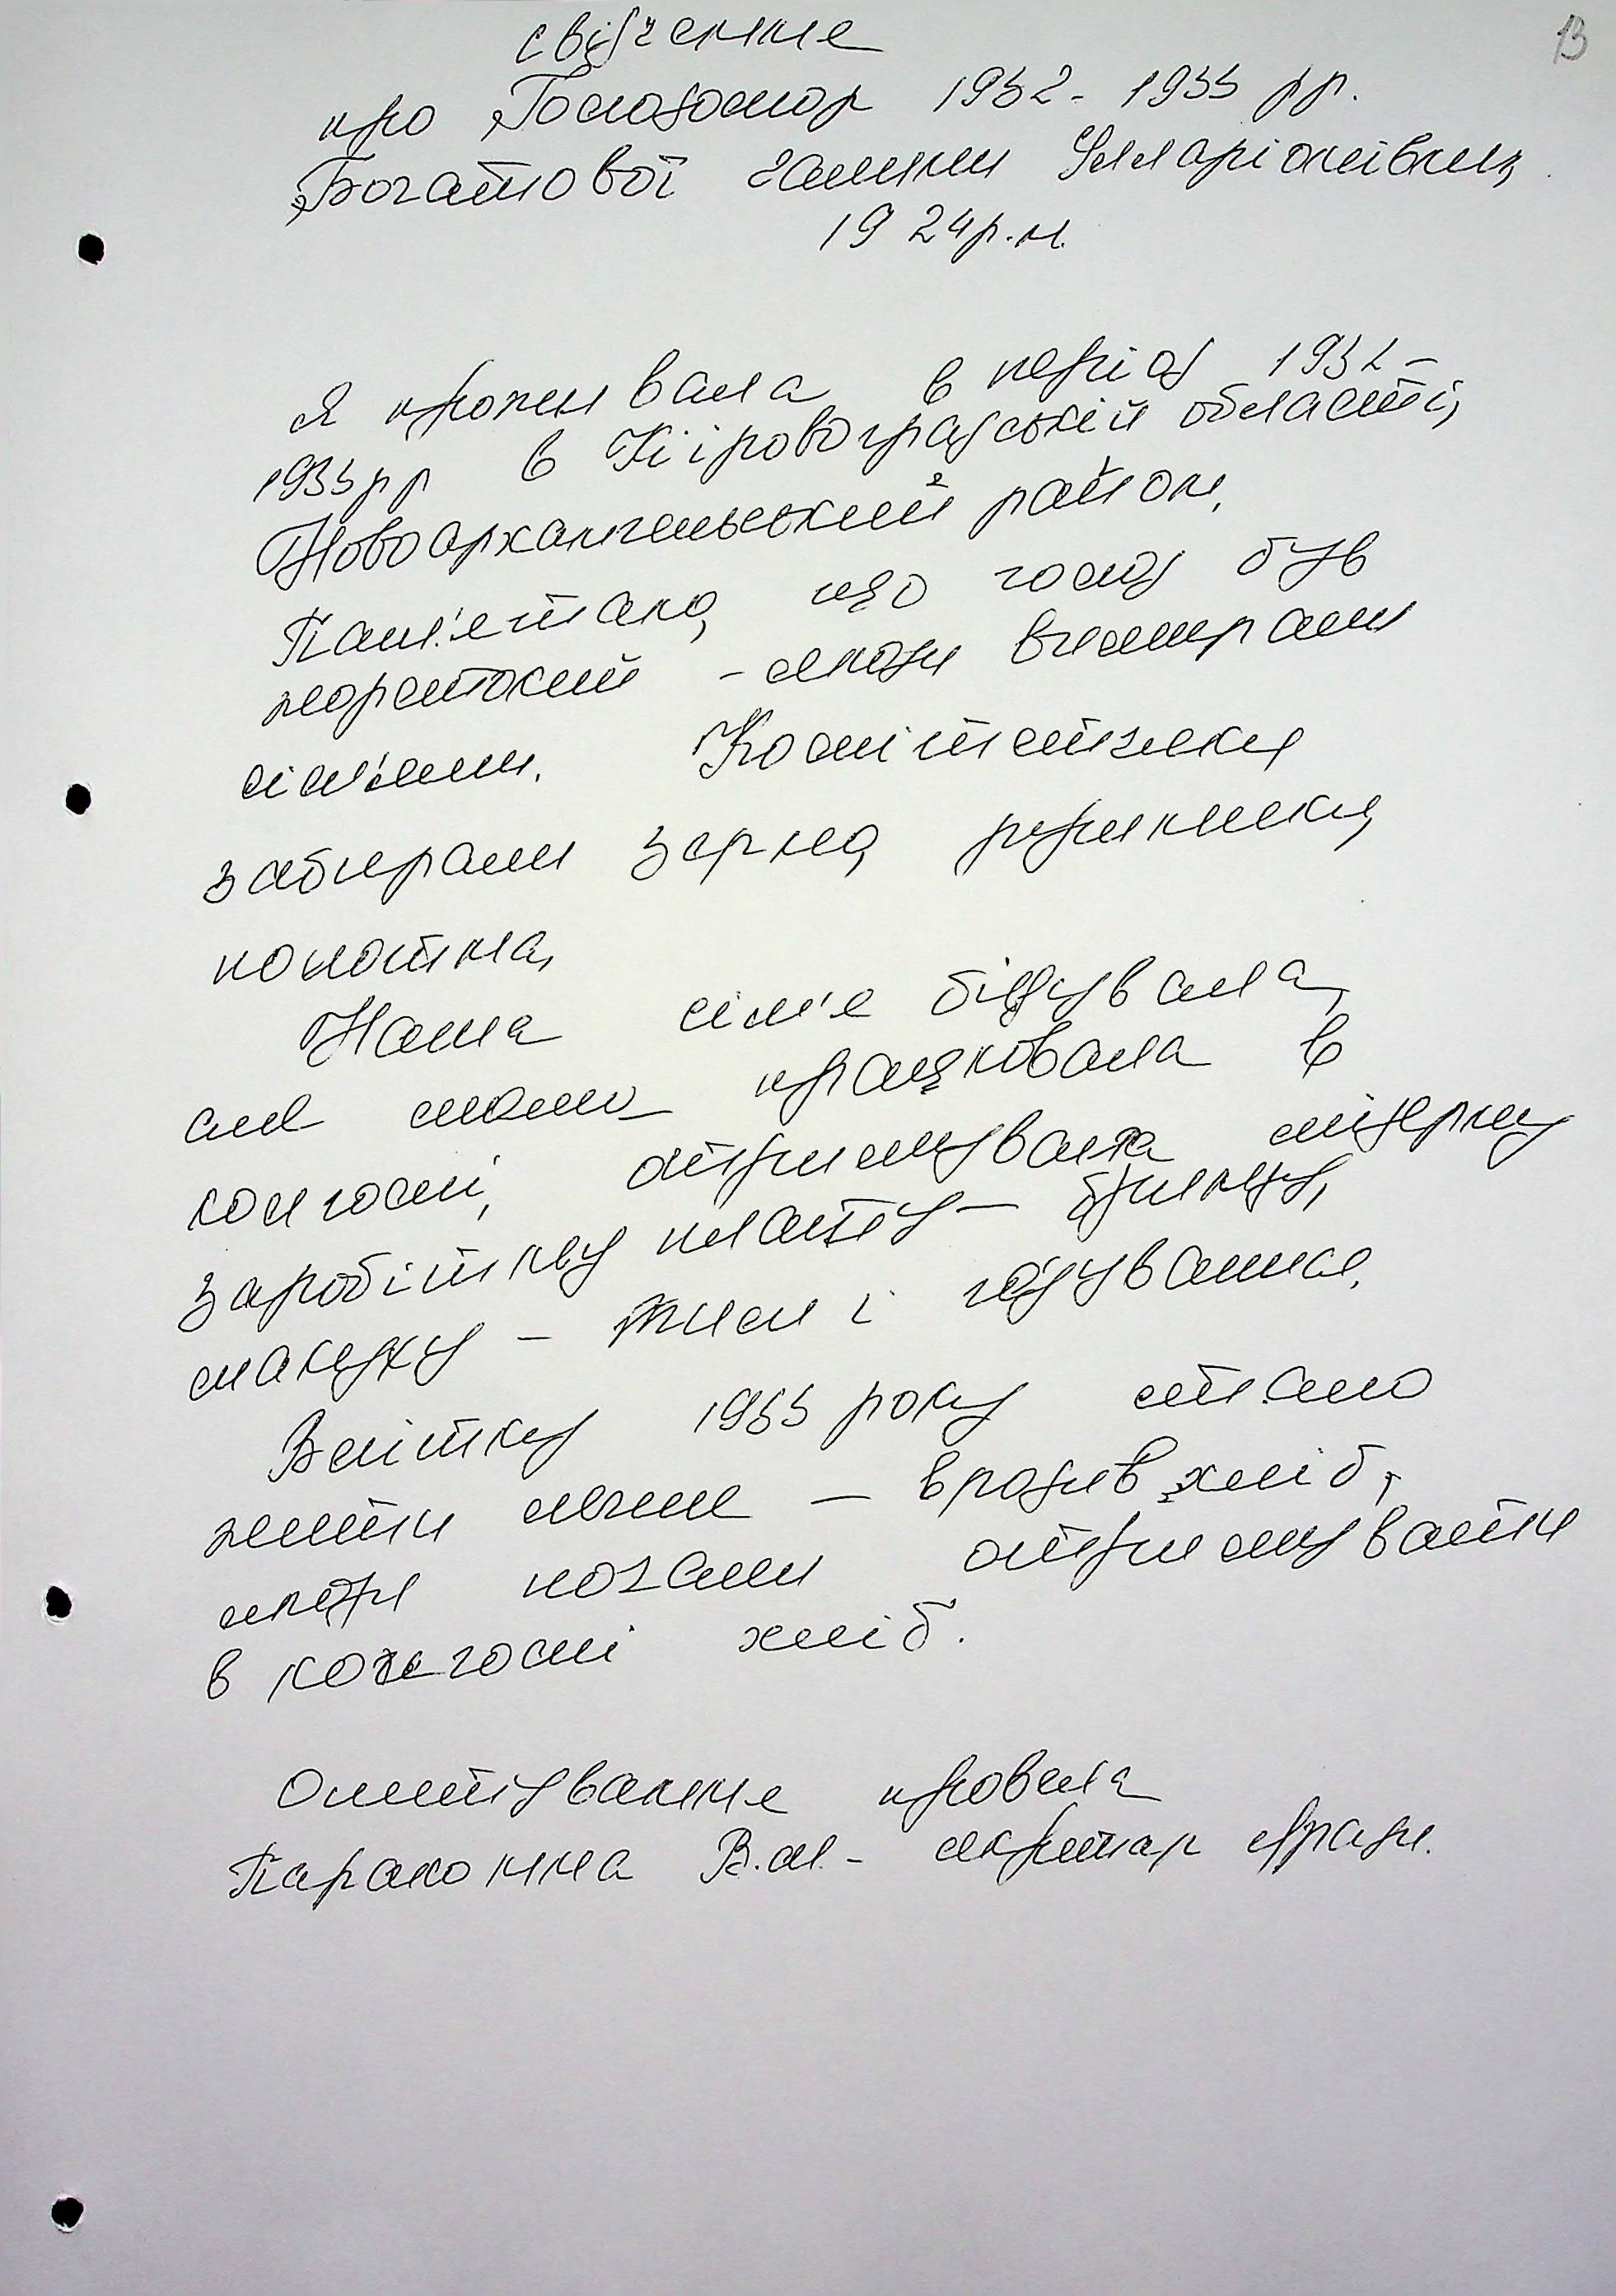 13
свідчення
про Голодомор 1932-1933 рр.
Богатової Галини Ілларіонівни,
1924 р.н.
Я проживала в період 1932-
1933 рр в Кіровоградській області,
Новоархангельський район.
Пам'ятаю, що голод був
жорстокий - люди вмирали
сім'ями. Комітетчики
забирали зерно, рушники,
полотна,
Наша сім'я бідувала,
але мама працювала в
колгоспі, отримувала мізерну
заробітну плату - бринзу,
макуху - тим і годувалися.
Влітку 1933 року стало
жити легше - вродив хліб,
люди почали отримувати
в колгоспі хліб.
Опитування провела
В.М. - секретар с/ради.